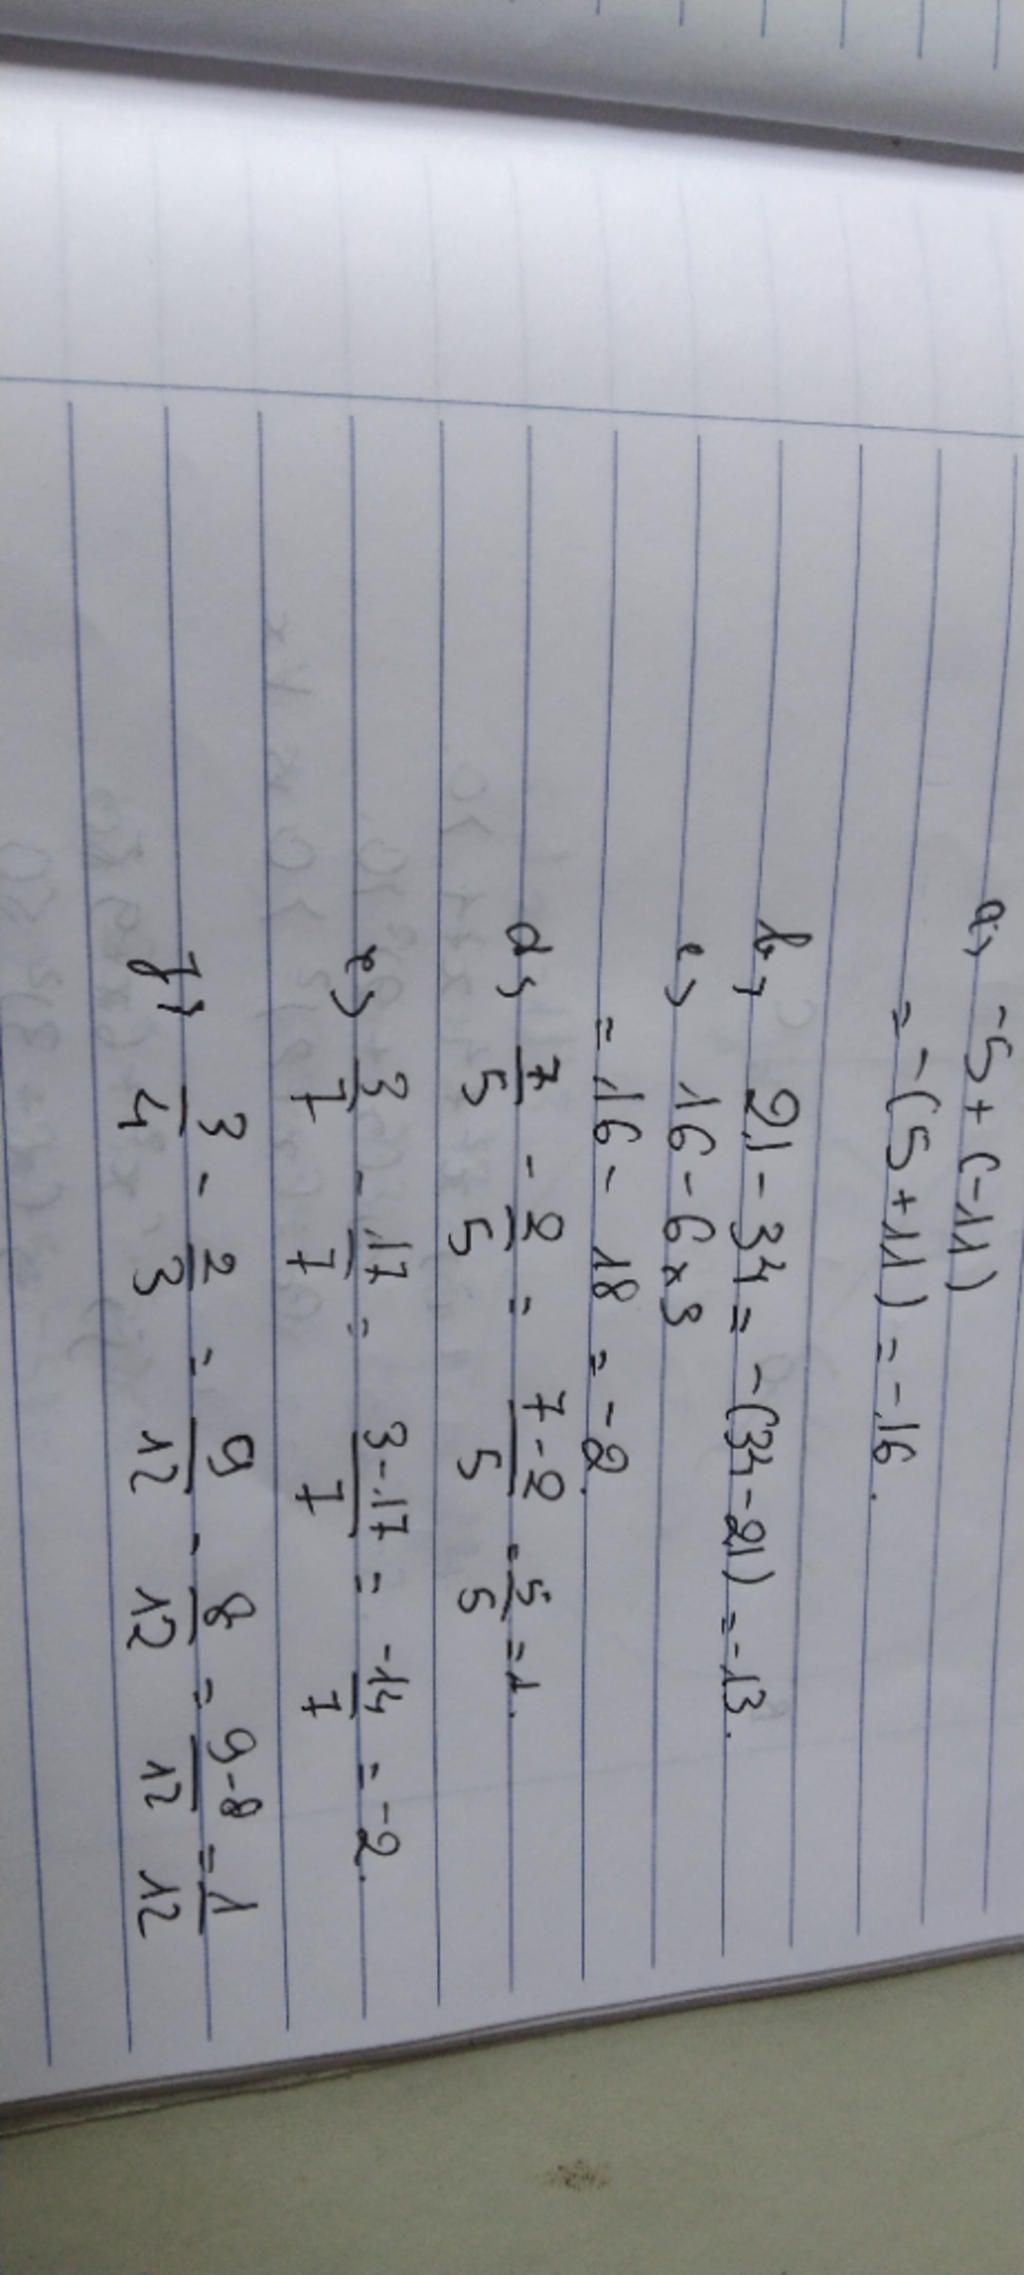 a, -5 + (-11)
= -(5+11) = -16.
b, 21 - 34 = -(34-21) = -13.
c, 16 - 6 x 3
= 16 - 18 = -2.
d, 7/5 - 2/5 = 7-2/5 = 5/5 = 1.
e, 3/7 - 17/7 = 3-17/7 = -14/7 = -2.
f, 3/4 - 2/3 = 9/12 - 8/12 = 9-8/12 = 1/12